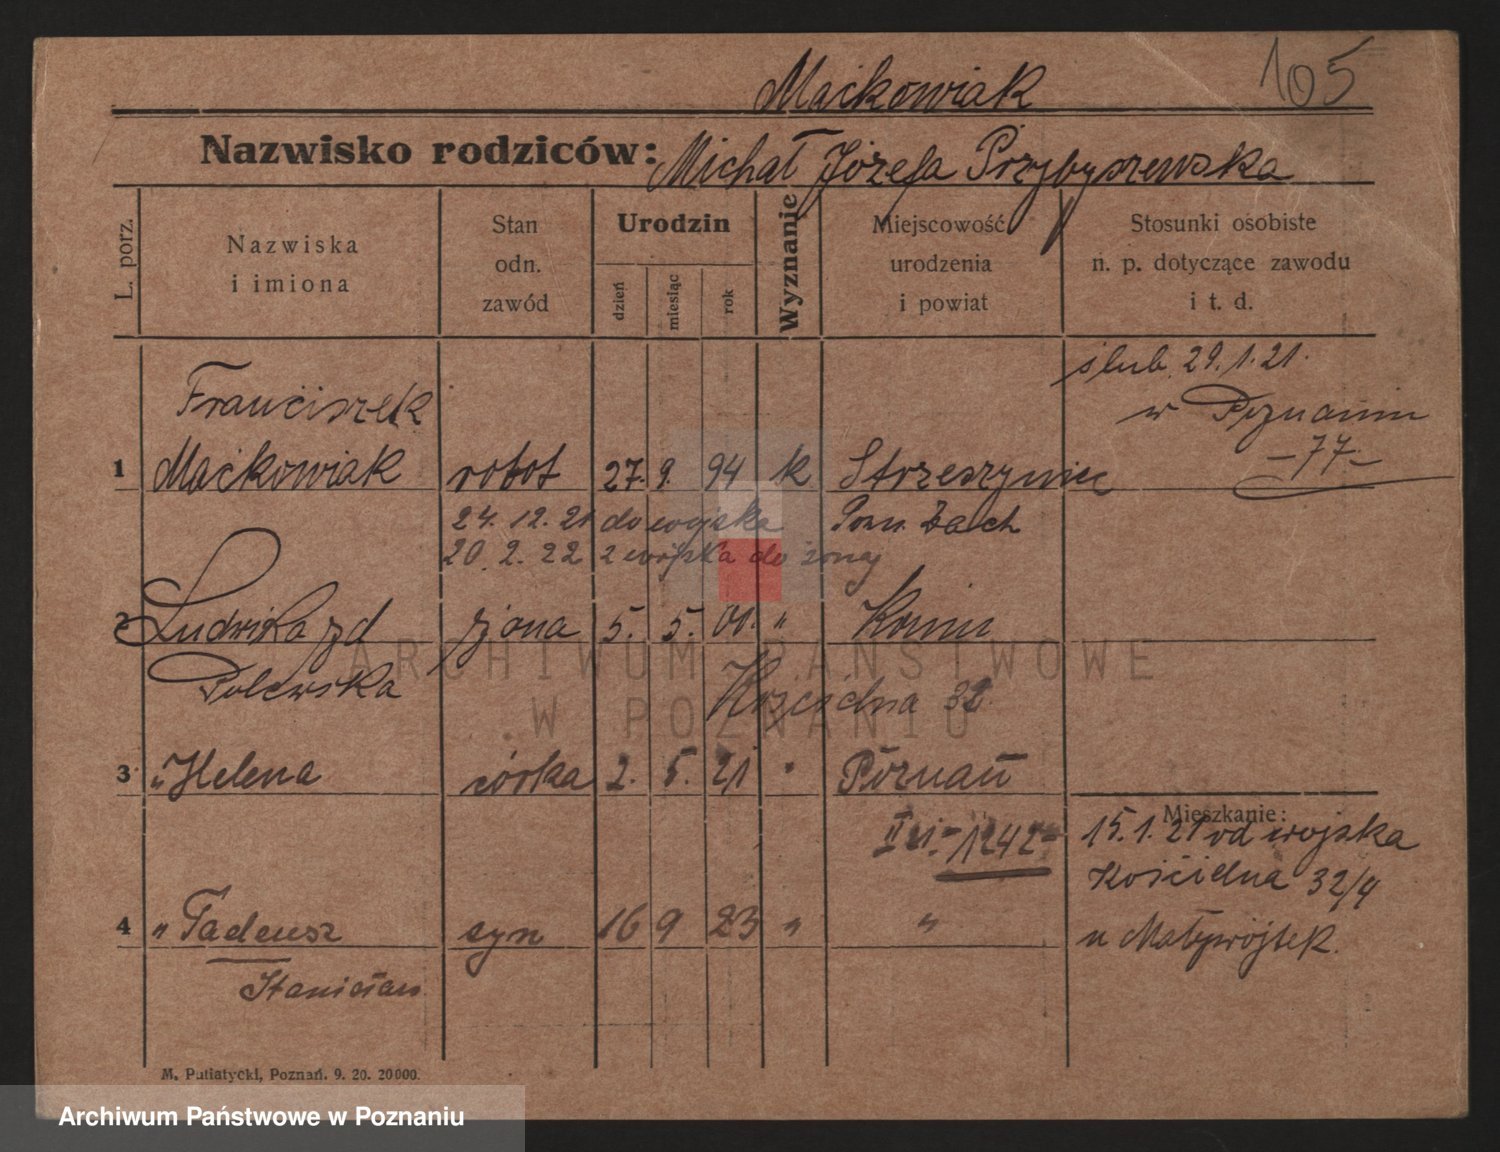 Maćkowiak 105
Nazwisko rodziców: Michał Józefa Przybyszewska
L. porz.
Nazwiska
i imiona
Stan
odn.
zawód
Urodzin
dzień
miesiąc
rok
Wyznanie
Miejscowość
urodzenia
i powiat
Stosunki osobiste
n. p. dotyczące zawodu
i t. d.
ślub 29.1.21.
w Poznaniu
-77-
Franciszek
1 Maćkowiak robot 27. 9. 94 k Strzeszyniec
24. 12. 21 do wojska Pozn. Zach
20. 2. 22 z wojska do żony
2 Ludwika zd żona 5. 5. 01. "
Polewska 32
3 " Helena córka 2. 5. 21 " Poznań
1242
Mieszkanie:
15.1.21 od wojska
Kościelna 32/9
u
4 " Tadeusz syn 16 9 23 " "
Stanisław
M. Putiatycki, Poznań. 9. 20. 20000.
ARCHIWUM PAŃSTWOWE
W POZNANIU
Archiwum Państwowe w Poznaniu